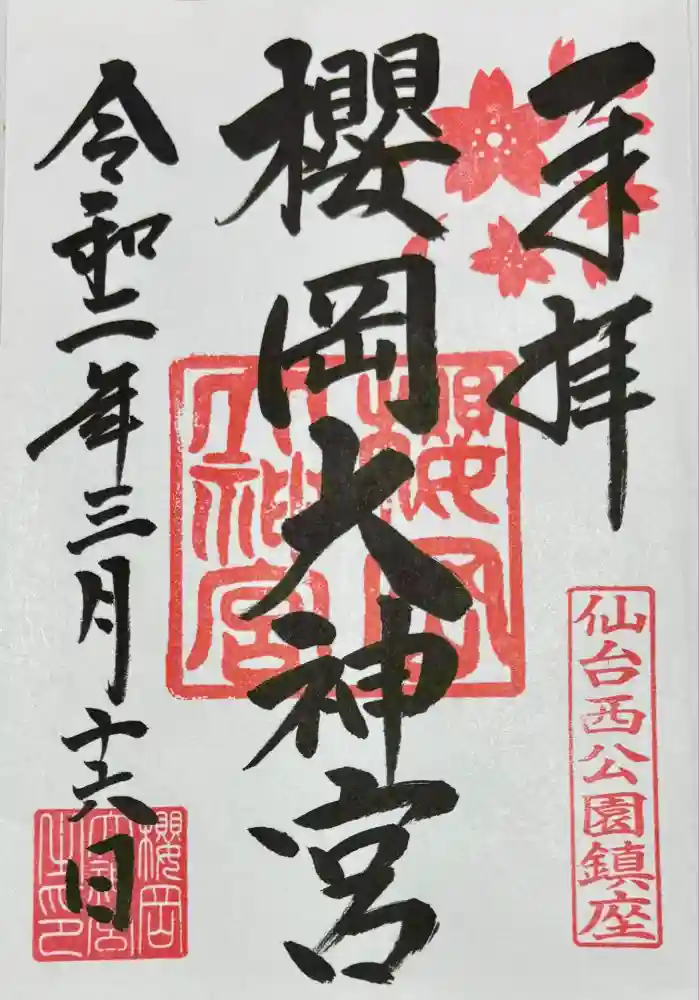 奉拝
仙台西公園鎮座
櫻岡大神宮
櫻岡
大神宮
令和二年三月十六日
櫻岡